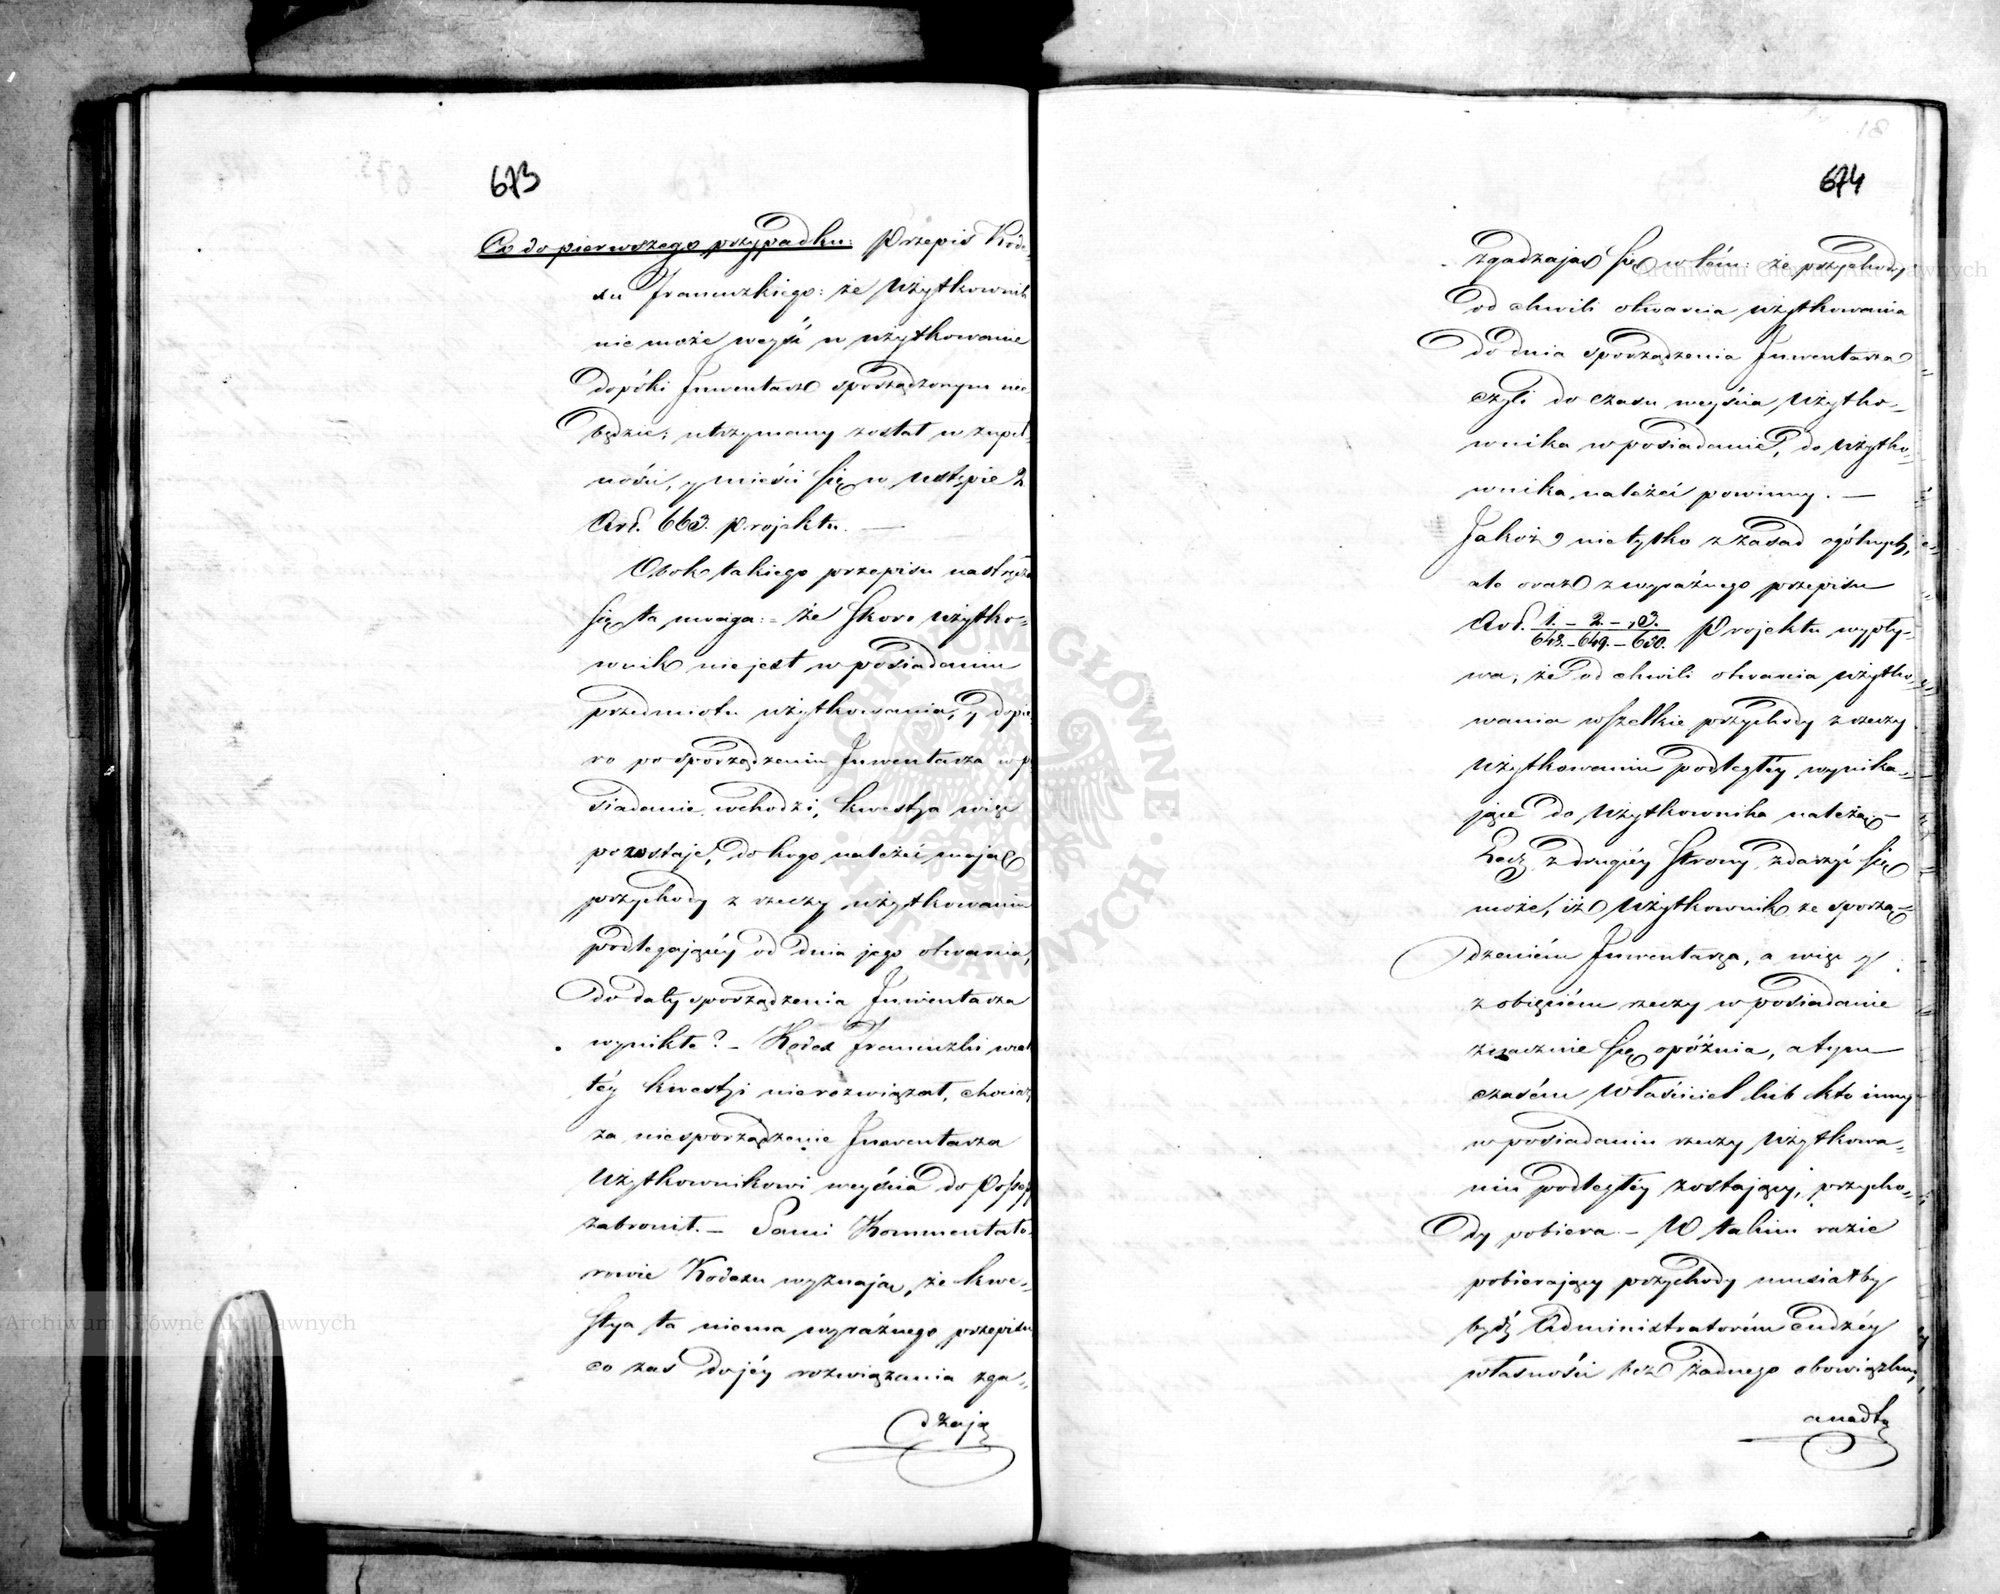 673
Co do pierwszego przypadku: Przepis Kode„
xu Francuzkiego: że Użytkownik
nie może weyść w użytkowanie
dopóki Inwentarz sporządzonym nie
będzie; utrzymany został w zupeł„
ności, y mieści się w ustępie 2
Art. 663. projektu. —
Obok takiego przepisu nastręcza
się ta uwaga: – że skoro użytko„
wnik nie jest w posiadaniu
przedmiotu użytkowania, y dopie„
ro po sporządzeniu Inwentarza w po
siadanie wchodzi, kwestya więc
pozostaje, do kogo należeć mają
przychody z rzeczy użytkowaniu
podlegającéy od dnia jego otwarcia,
do daty sporządzenia Inwentarza
wynikłe? – Kodex Francuzki wcale
téy kwestyi nierozwiązał, chociaż
za niesporządzenie Inwentarza
Użytkownikowi weyścia do Possess
zabronił. – Sami Kommentato„
rowie Kodexu wyznają, że kwe„
stya ta niema wyraźnego przepisu
co zaś do jéy rozwiązania zga„
dzają
18
674
zgadzają się w tém: że przychody
od chwili otwarcia użytkowania
do dnia sporządzenia Inwentarza
czyli do czasu weyścia Użytko„
wnika w posiadanie, do Użytko„
wnika należeć powinny. —
Jakoż nietylko z zasad ogólnych,
ale oraz z wyraźnego przepisu
Art. 1. – 2. – 3. / 648. – 649. – 650. Projektu wypły„
wa, że od chwili otwarcia użytko„
wania wszelkie przychody z rzeczy
Użytkowaniu podległéy wynika„
jące do Użytkownika należą –
Lecz z drugiéy strony zdarzyć się
może, iż Użytkownik ze sporzą„
dzeniém Inwentarza, a więc y
z objęciém rzeczy w posiadanie
znacznie się opóźnia, a tym
czasém Właściciel lub kto inny
w posiadaniu rzeczy Użytkowa„
niu podległéy zostający, przycho„
dy pobiera. – W takim razie
pobierający przychody musiałby
bydź Administratorém cudzéy
własności bez żadnego obowiązku,
a nadto
Archiwum Główne Akt Dawnych
Archiwum Główne Akt Dawnych
ARCHIWUM GŁÓWNE · AKT DAWNYCH ·